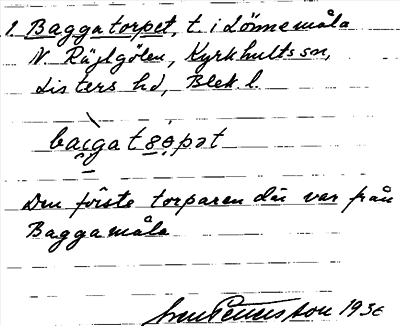 1. Baggatorpet, t. i Lönnemåla
N. Räjlgölen, Kyrkhults sn,
Listers hd, Blek. l.
Den förste torparen där var från
Baggamåla
1936